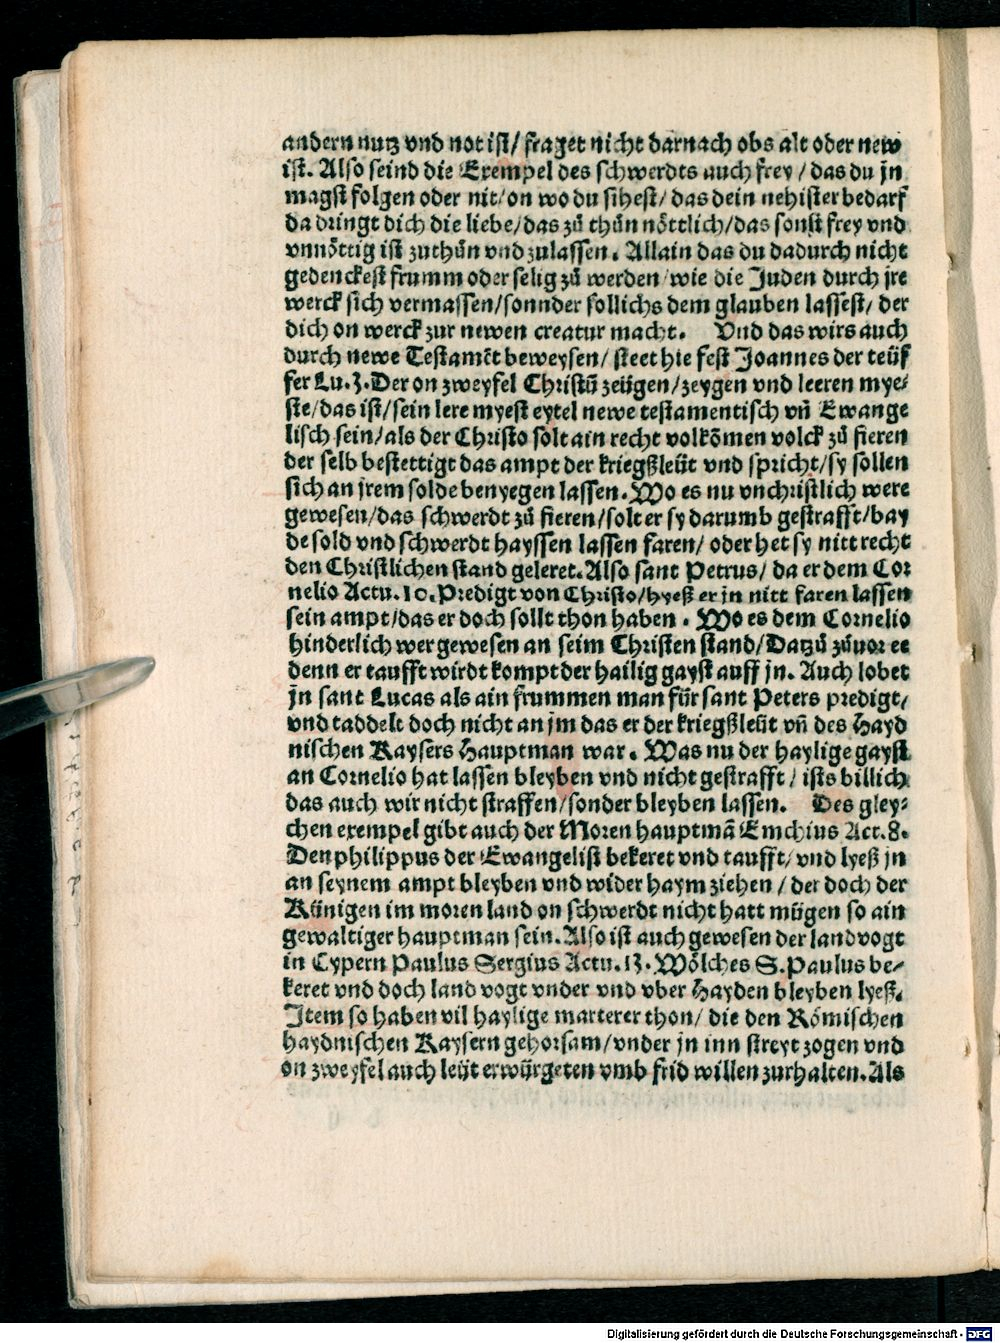 andern nutz vnd not ist/ fraget nicht darnach obs alt oder new
ist. Also seind die Exempel des schwerdts auch frey / das du jn
magst folgen oder nit/ on wo du sihest/ das dein nehister bedarf
da dringt dich die liebe/das zů thůn nöttlich/das sonst frey vnd
vnnöttig ist zuthůn vnd zulassen. Allain das du dadurch nicht
gedenckest frumm oder selig zů werden/ wie die Juden durch jre
werck sich vermassen/sonnder sollichs dem glauben lassest/ der
dich on werck zur newen creatur macht. Vnd das wirs auch
durch newe Testamēt beweysen/ steet hie fest Joannes der teüf
fer Lu. 3. Der on zweyfel Christū zeügen/zeygen vnd leeren mye-
ste/das ist/sein lere myest eytel newe testamentisch vn̄ Ewange
lisch sein/als der Christo solt ain recht volkōmen volck zů fieren
der selb bestettigt das ampt der kriegßleüt vnd spricht/sy sollen
sich an jrem solde benyegen lassen. Wo es nu vnchristlich were
gewesen/das schwerdt zů fieren/solt er sy darumb gestrafft/bay
de sold vnd schwerdt hayssen lassen faren/ oder het sy nitt recht
den Christlichen stand geleret. Also sant Petrus/ da er dem Cor-
nelio Actu. 10. Predigt von Christo/hyeß er jn nitt faren lassen
sein ampt/das er doch sollt thon haben. Wo es dem Cornelio
hinderlich wer gewesen an seim Christen stand/Datzů zůuor ee
denn er taufft wirdt kompt der hailig gayst auff jn. Auch lobet
jn sant Lucas als ain frummen man für sant Peters predigt/
vnd taddelt doch nicht an jm das er der kriegßleüt vn̄ des Hayd
nischen Kaysers Hauptman war. Was nu der haylige gayst
an Cornelio hat lassen bleyben vnd nicht gestrafft / ists billich
das auch wir nicht straffen/sonder bleyben lassen. Des gley-
chen exempel gibt auch der Moren hauptmā Emchius Act. 8.
Den philippus der Ewangelist bekeret vnd taufft/ vnd lyeß jn
an seynem ampt bleyben vnd wider haym ziehen / der doch der
Künigen im moren land on schwerdt nicht hatt mügen so ain
gewaltiger hauptman sein. Also ist auch gewesen der landvogt
in Cypern Paulus Sergius Actu. 13. Wölches S. Paulus be-
keret vnd doch land vogt vnder vnd vber Hayden bleyben lyeß.
Item so haben vil haylige marterer thon/ die den Römischen
haydnischen Kaysern gehorsam/vnder jn inn streyt zogen vnd
on zweyfel auch leüt erwürgeten vmb frid willen zurhalten. Als
Digitalisierung gefördert durch die Deutsche Forschungsgemeinschaft - DFG